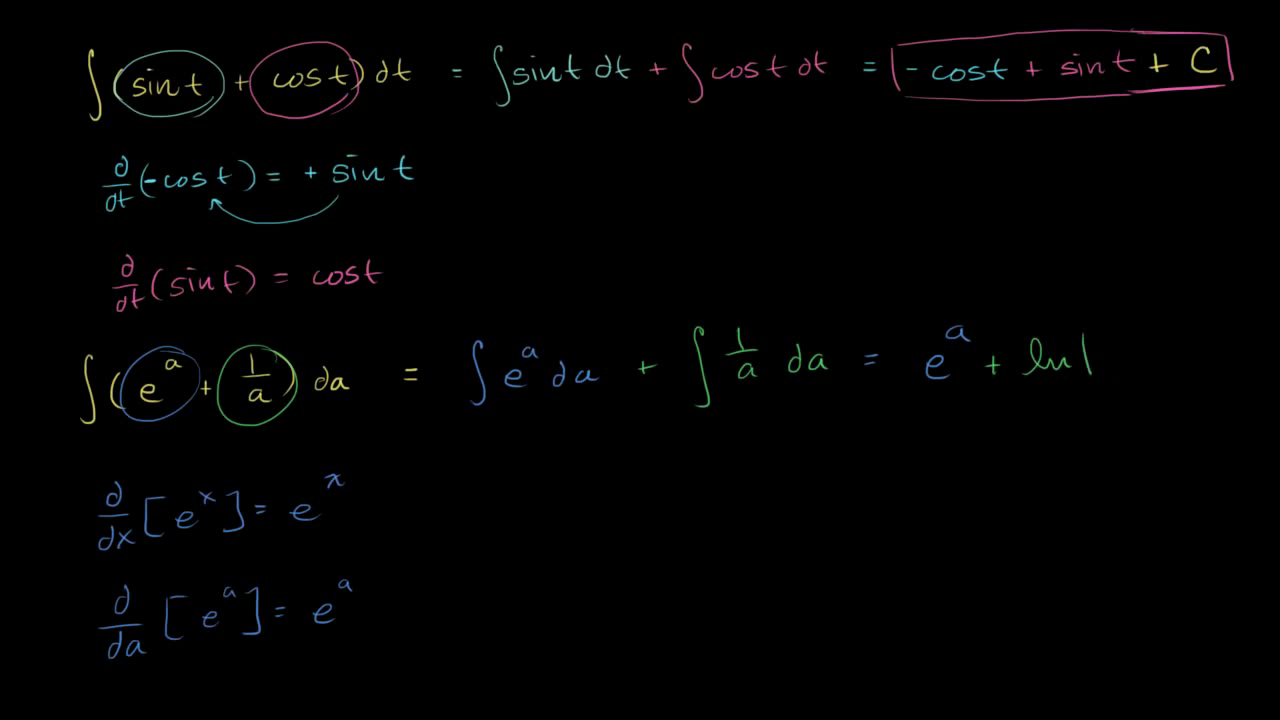 ∫(sin t + cos t) dt = ∫sin t dt + ∫cos t dt = - cos t + sin t + C
d/dt (-cos t) = + sin t
d/dt (sin t) = cos t
∫(e^a + 1/a) da = ∫e^a da + ∫1/a da = e^a + ln|
d/dx [e^x] = e^x
d/da [e^a] = e^a